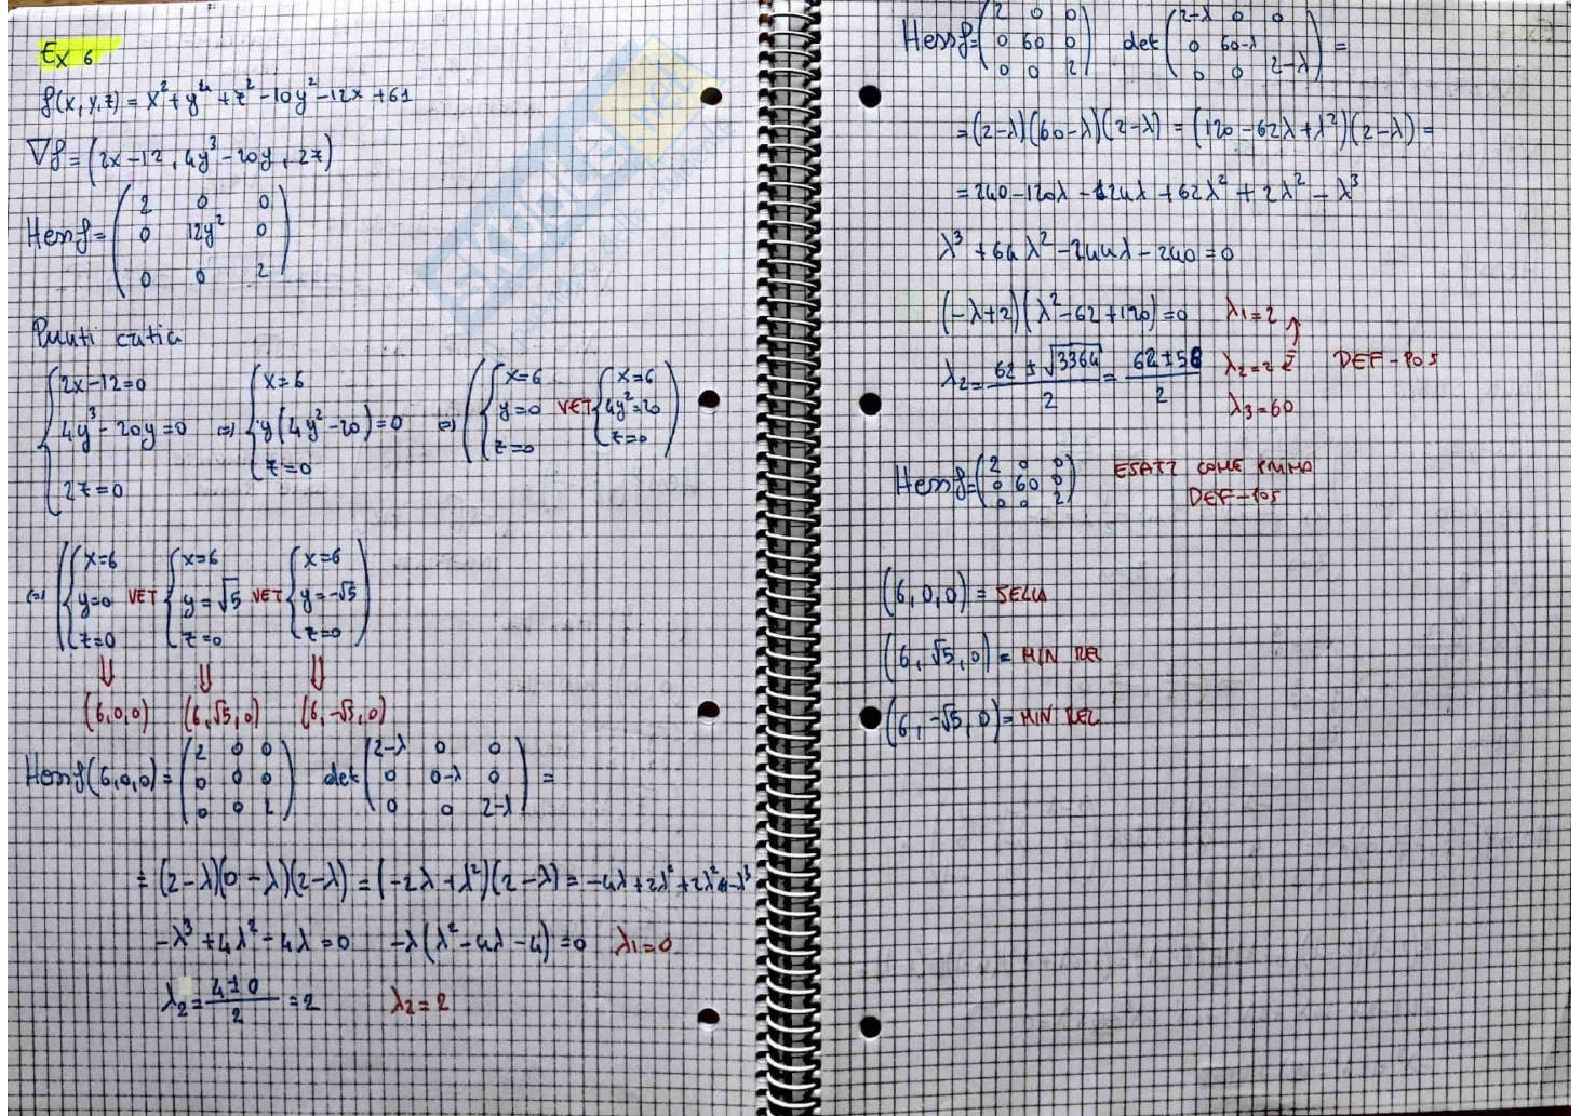 Ex 6
f(x,y,z) = x² + y⁴ + z² - 10y² - 12x + 61
∇f = (2x-12, 4y³-20y, 2z)
Hess f = (2 0 0
0 12y² 0
0 0 2)
Punti critici
{2x-12=0
4y³-20y=0
2z=0
⇔ {x=6
y(4y²-20)=0
z=0
⇔ ({x=6
y=0
z=0
VET {x=6
4y²=20
z=0)
⇔ ({x=6
y=0
z=0
VET {x=6
y=√5
z=0
VET {x=6
y=-√5
z=0)
⇓ ⇓ ⇓
(6,0,0) (6,√5,0) (6,-√5,0)
Hess f(6,0,0) = (2 0 0
0 0 0
0 0 2)
det (2-λ 0 0
0 0-λ 0
0 0 2-λ) =
= (2-λ)(0-λ)(2-λ) = (-2λ+λ²)(2-λ) = -4λ+2λ²+2λ²-λ³
-λ³+4λ²-4λ=0 -λ(λ²-4λ-4)=0 λ1=0
λ2 = (4±0)/2 = 2 λ2=2
Hess f = (2 0 0
0 60 0
0 0 2)
det (2-λ 0 0
0 60-λ 0
0 0 2-λ) =
= (2-λ)(60-λ)(2-λ) = (120-62λ+λ²)(2-λ) =
= 240-120λ-124λ+62λ²+2λ²-λ³
λ³+64λ²-244λ-240=0
(-λ+2)(λ²-62+120)=0 λ1=2
λ2 = (62±√3364)/2 = (62±58)/2 λ2=2 DEF-POS
λ3=60
Hess f = (2 0 0
0 60 0
0 0 2)
ESATT COME PRIMA
DEF-POS
(6,0,0) = SELLA
(6,√5,0) = MIN REL
(6,-√5,0) = MIN REL
skuola.net